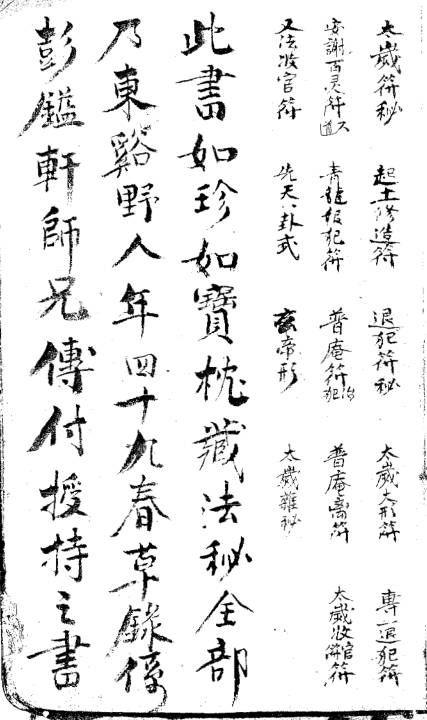 太歲符秘 起土修造符 退犯符秘 太歲大形符 專一退犯符
安謝百灵符 青龍報犯符 普庵符治犯 普庵符 太歲收官符
又法收官符 先天八卦式 玄帝形 太歲雜秘
此書如珍如寶枕藏法秘全部
乃東谿野人年四十九春草錄係
彭鎰軒師兄傳付授持之書